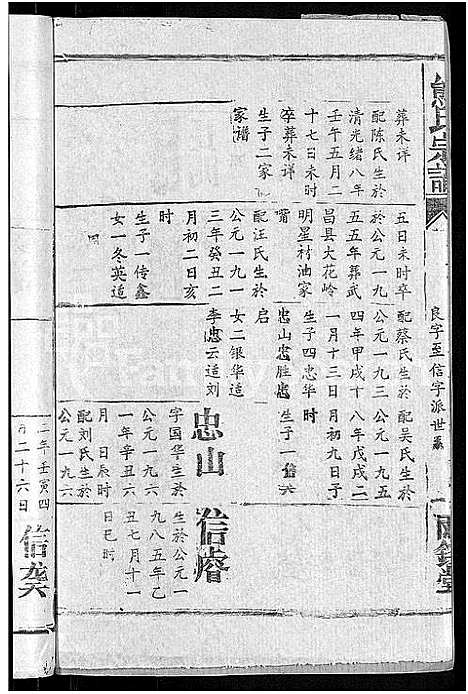 熊氏宗譜
良字至信字派世系
葬未详
配陈氏生於
清光绪八年
壬午五月二
十七日未时
卒葬未详
生子二家
家谱
五日未时卒
於公元一九
五五年葬武
昌县大花岭
明星村油家
嘴
配汪氏生於
公元一九一
三年癸丑二
月初二日亥
时
生子一传鑫
女一冬英适
配蔡氏生於
公元一九三
四年甲戌十
一月十三日
生子四忠华
忠山忠胜忠
启
女二银华适
李忠云适刘
配吴氏生於
公元一九五
八年戊戌二
月初九日子
时
生子一信六
忠山
字国华生於
公元一九六
一年辛丑六
月 日辰时
配刘氏生於
公元一九六
二年壬寅四
月二十六日
信
生於公元一
九八五年乙
丑七月十一
日巳时
信龚